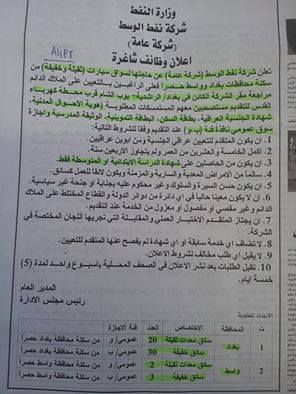 وزارة النفط
شركة نفط الوسط
(شركة عامة)
اعلان وظائف شاغرة
تعلن شركة نفط الوسط (شركة عامة) عن حاجتها لسواق سيارات (ثقيلة وخفيفة) من
سكنة محافظات بغداد وواسط حصرا فعلى الراغبين بالتعيين على الملاك الدائم
مراجعة مقر الشركة الكائن في بغداد/ الراشدية/ بوب الشام قرب محطة كهرباء
القدس للتقديم مستصحبين معهم المستمسكات المطلوبة (هوية الاحوال المدنية،
شهادة الجنسية العراقية، بطاقة السكن، البطاقة التموينية، الوثيقة المدرسية واجازة
سوق عمومي نافذة فئة (ب، و) عند التقديم وفقا للشروط التالية:
1. ان يكون المتقدم للتعيين عراقي الجنسية ومن ابوين عراقيين.
2. اكمل الخامسة والعشرين من العمر ولم يتجاوز الاربعين سنة.
3. ان يكون من الحاصلين على شهادة الدراسة الابتدائية او المتوسطة فقط.
4. سالما من الامراض المعدية والسارية والمزمنة ويكون لائقا للعمل كسائق.
5. ان يكون حسن السيرة والسلوك وغير محكوم عليه بجناية او جنحة غير سياسية.
6. ان لا يكون معينا حاليا في اي دائرة من دوائر الدولة والقطاع المختلط على الملاك
الدائم وغير مقصي او مفصول او معزول من الخدمة عند التقديم.
7. ان يجتاز المتقدم الاختبار العملي والمقابلة التي تجريها اللجان المختصة في
الشركة.
8. لا تضاف اي خدمة سابقة او اي شهادة لم يفصح عنها المتقدم للتعيين.
9. لا يقبل اي طلب مخالف لشروط الاعلان.
10. تقبل الطلبات بعد نشر الاعلان في الصحف المحلية باسبوع واحد لمدة (5)
خمسة ايام.
المدير العام
رئيس مجلس الادارة
الاعداد المطلوبة
ت المحافظة الاختصاص العدد فئة الاجازة
1 بغداد سائق معدات ثقيلة 20 عمومي/ و من سكنة محافظة بغداد حصرا
سائق خفيفة 30 عمومي/ ب من سكنة محافظة بغداد حصرا
2 واسط سائق معدات ثقيلة 2 عمومي/ و من سكنة محافظة واسط حصرا
سائق خفيفة 3 عمومي/ ب من سكنة محافظة واسط حصرا